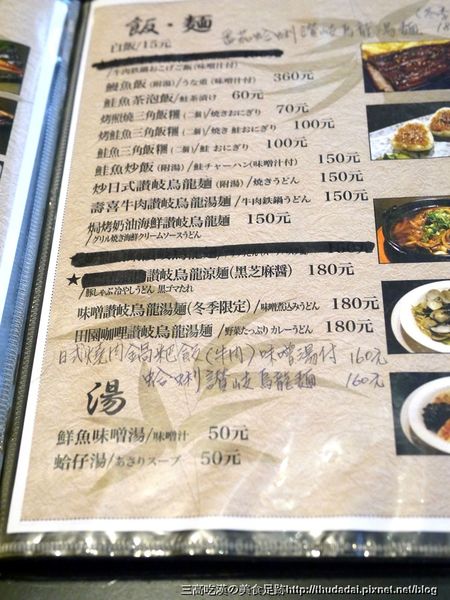 飯・麵
白飯/15元
番茄蛤蜊讚岐烏龍湯麵
/牛肉鉄鍋おこげご飯(味噌汁付)
鰻魚飯(附湯)/うな重(味噌汁付) 360元
鮭魚茶泡飯/鮭茶漬け 60元
烤照燒三角飯糰(二個)/焼きおにぎり 70元
烤鮭魚三角飯糰(二個)/焼き 鮭おにぎり 100元
鮭魚三角飯糰(二個)/鮭 おにぎり 100元
鮭魚炒飯(附湯)/鮭チャーハン(味噌汁付) 150元
炒日式讚岐烏龍麵(附湯)/焼きうどん 150元
壽喜牛肉讚岐烏龍湯麵/牛肉鉄鍋うどん 150元
焗烤奶油海鮮讚岐烏龍麵 150元
/グリル焼き海鮮クリームソースうどん
★讚岐烏龍涼麵(黑芝麻醬) 180元
/豚しゃぶ冷やしうどん 黒ゴマたれ
味噌讚岐烏龍湯麵(冬季限定)/味噌煮込みうどん 180元
田園咖哩讚岐烏龍湯麵/野菜たっぷりカレーうどん 180元
日式燒肉鍋粑飯(牛肉)味噌湯付 160元
蛤蜊讚岐烏龍麵 160元
湯
鮮魚味噌湯/味噌汁 50元
蛤仔湯/あさりスープ 50元
三高吃漢の美食足跡http://thudadai.pixnet.net/blog